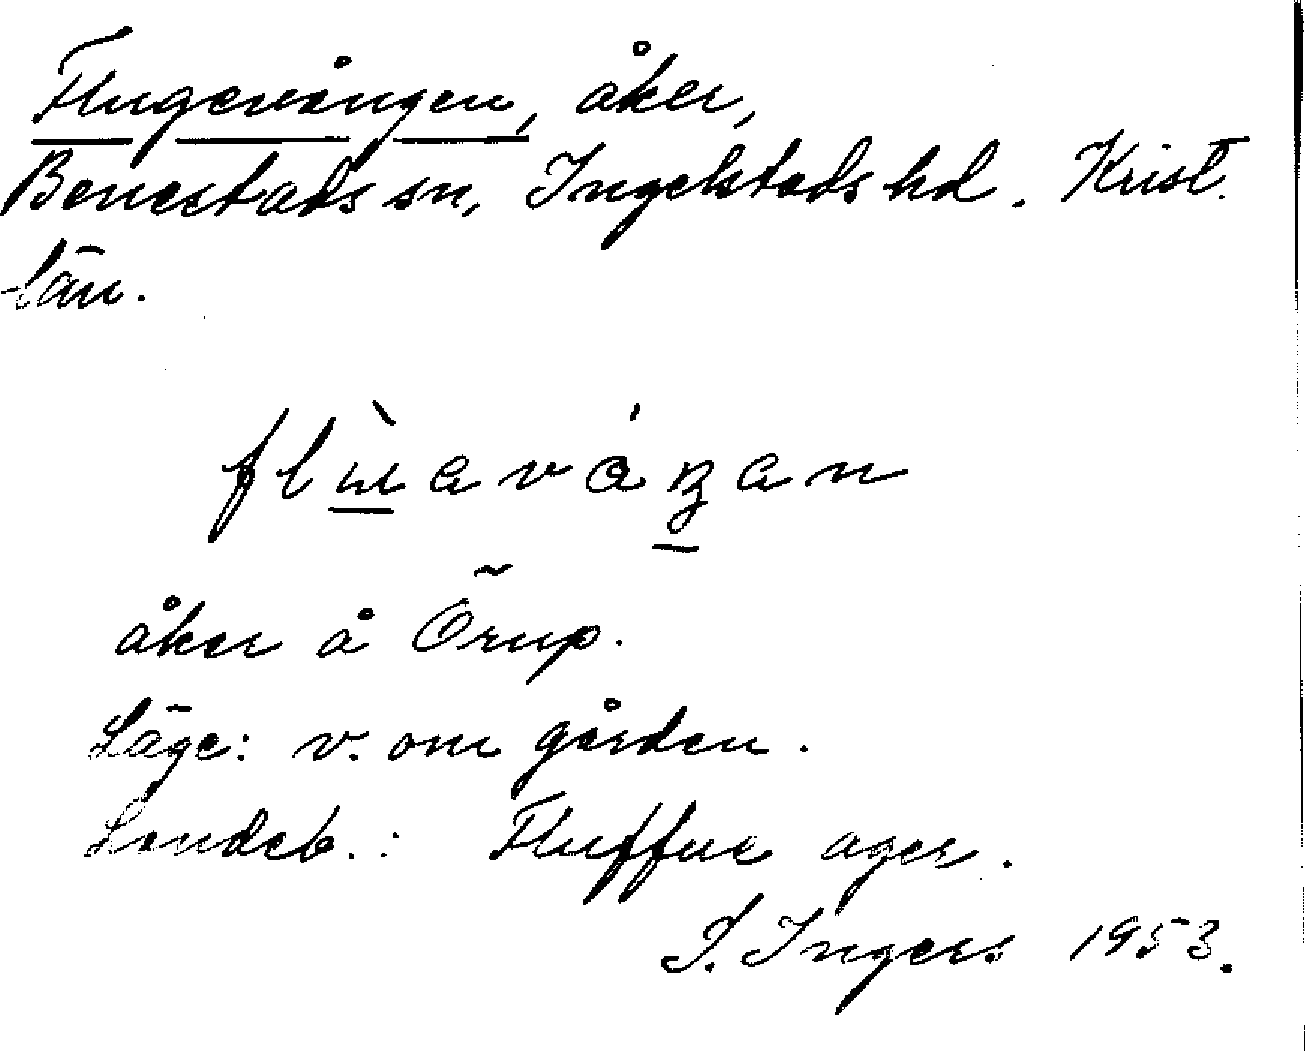 Flugevången, åker,
Benestads sn, Ingelstads hd. Krist.
län.
åker å Örup.
Läge: v. om gården.
Landeb.: Fluffue ager.
I. Ingers 1953.